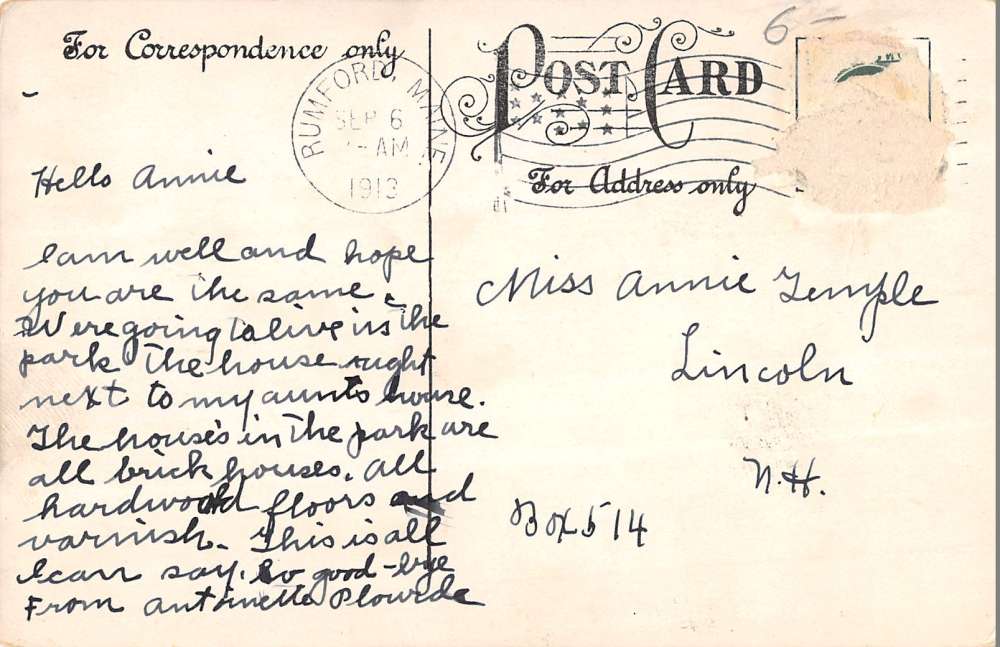 For Correspondence only
POST CARD
For Address only
6-
RUMFORD, MAINE
SEP 6
-AM
1913
Hello Annie
I am well and hope
you are the same.
We're going to live in the
park the house right
next to my aunts house.
The house's in the park are
all brick houses. all
hardwood floors and
varnish. This is all
I can say. So good-bye
From Antoinette Plourde
Miss Annie Temple
Lincoln
N.H.
Box 514